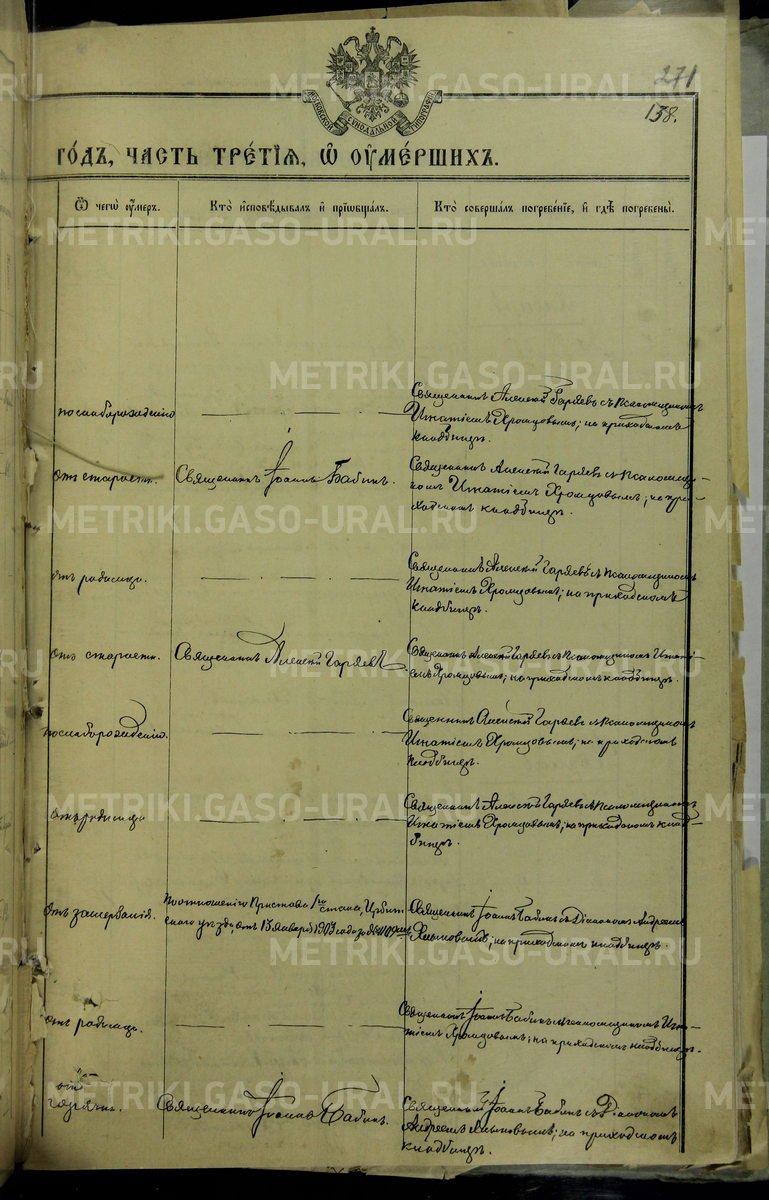 271
138.
МОСКОВСКОЙ СѴНОДАЛЬНОЙ ТИПОГРАФІИ
ГОДЪ, ЧАСТЬ ТРЕТІЯ, Ѡ ОУМЕРШИХЪ.
Ѿ чегѡ оумеръ.
Кто исповѣдывалъ и пріобщалъ.
Кто совершалъ погребеніе, и гдѣ погребены.
Священникъ Алексѣй Гаряевъ съ псаломщикомъ
по слаборожденію
Игнатіемъ Хромцовымъ; на приходскомъ
кладбищѣ.
отъ старости.
Священникъ Іоаннъ Бабинъ.
Священникъ Алексѣй Гаряевъ съ псаломщи-
комъ Игнатіемъ Хромцовымъ; на при-
ходскомъ кладбищѣ.
Священникъ Алексѣй Гаряевъ съ псаломщикомъ
отъ родимца.
Игнатіемъ Хромцовымъ; на приходскомъ
кладбищѣ.
отъ старости.
Священникъ Алексѣй Гаряевъ
Священникъ Алексѣй Гаряевъ съ псаломщикомъ Игнаті-
емъ Хромцовымъ; на приходскомъ кладбищѣ.
Священникъ Алексѣй Гаряевъ съ псаломщикомъ
по слаборожденію.
Игнатіемъ Хромцовымъ; на приходскомъ
кладбищѣ.
Священникъ Алексѣй Гаряевъ съ псаломщикомъ
отъ родимца
Игнатіемъ Хромцовымъ; на приходскомъ клад-
бищѣ.
отъ замерзанія.
По отношенію Пристава 1го стана, Ирбит-
скаго уѣзда, отъ 13 января 1903 года за №
Священникъ Іоаннъ Бабинъ съ Діакономъ Андреемъ
на приходскомъ кладбищѣ.
отъ родимца.
Священникъ Іоаннъ Бабинъ съ псаломщикомъ Игна-
тіемъ Хромцовымъ; на приходскомъ кладбищѣ.
отъ
горячки.
Священникъ Іоаннъ Бабинъ.
Священникъ Іоаннъ Бабинъ съ Діакономъ
Андреемъ на приходскомъ
кладбищѣ.
METRIKI.GASO-URAL.RU